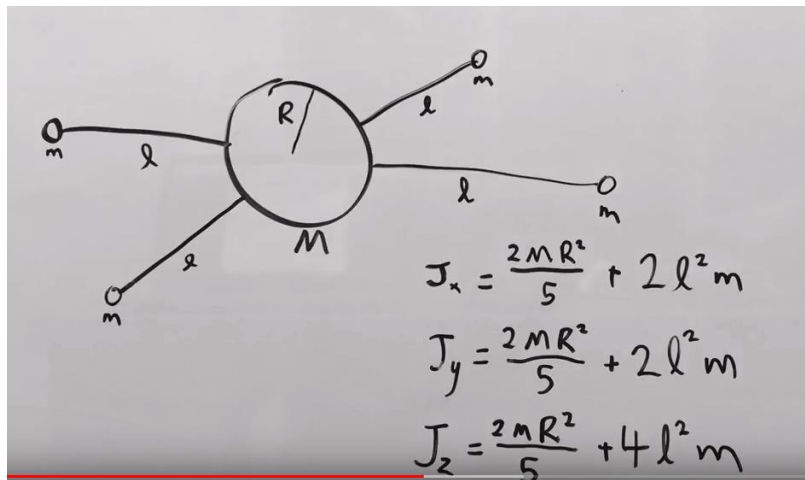 m
l
R
l
m
l
m
l
m
M
J_x = 2MR²/5 + 2l²m
J_y = 2MR²/5 + 2l²m
J_z = 2MR²/5 + 4l²m